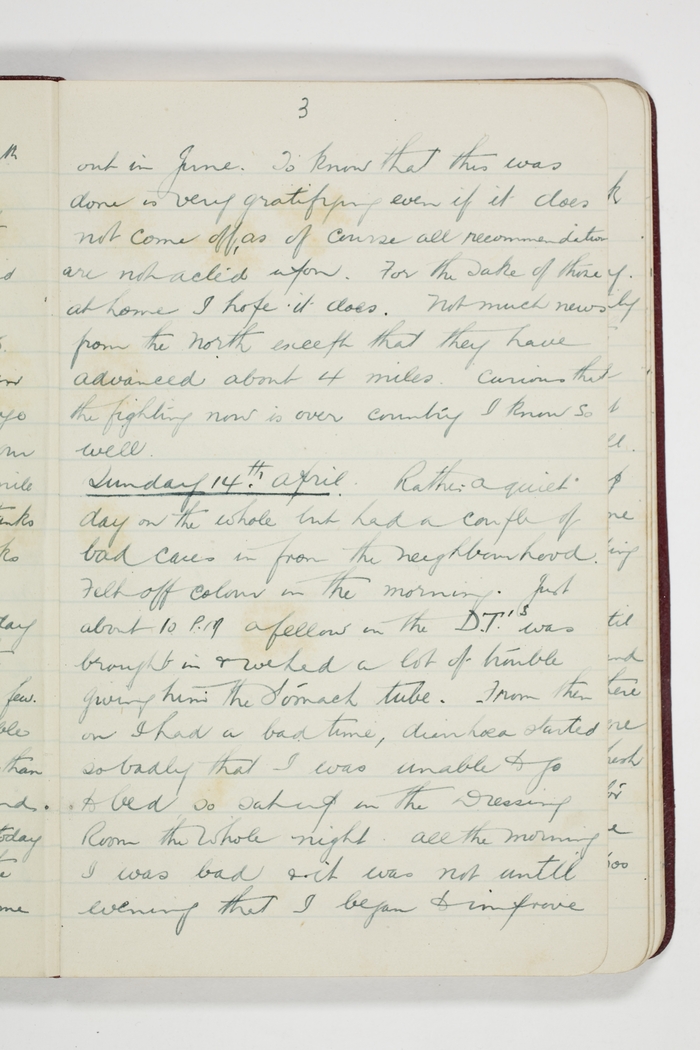 3
out in June. To know that this was
done is very gratifying even if it does
not come off, as of course all recommendation
are not acted upon. For the sake of those
at home I hope it does. Not much news
from the North except that they have
advanced about 4 miles. Curious that
the fighting now is over country I know so
well.
Sunday 14th April. Rather a quiet
day on the whole but had a couple of
bad cases in from the neighbourhood.
Felt off colour in the morning. Just
about 10 P.M a fellow in the D.T.'s was
brought in & we had a lot of trouble
giving him the Stomach tube. From then
on I had a bad time, diarrhoea started
so badly that I was unable to go
to bed, so sat up in the Dressing
Room the whole night. All the morning
I was bad & it was not until
evening that I began to improve